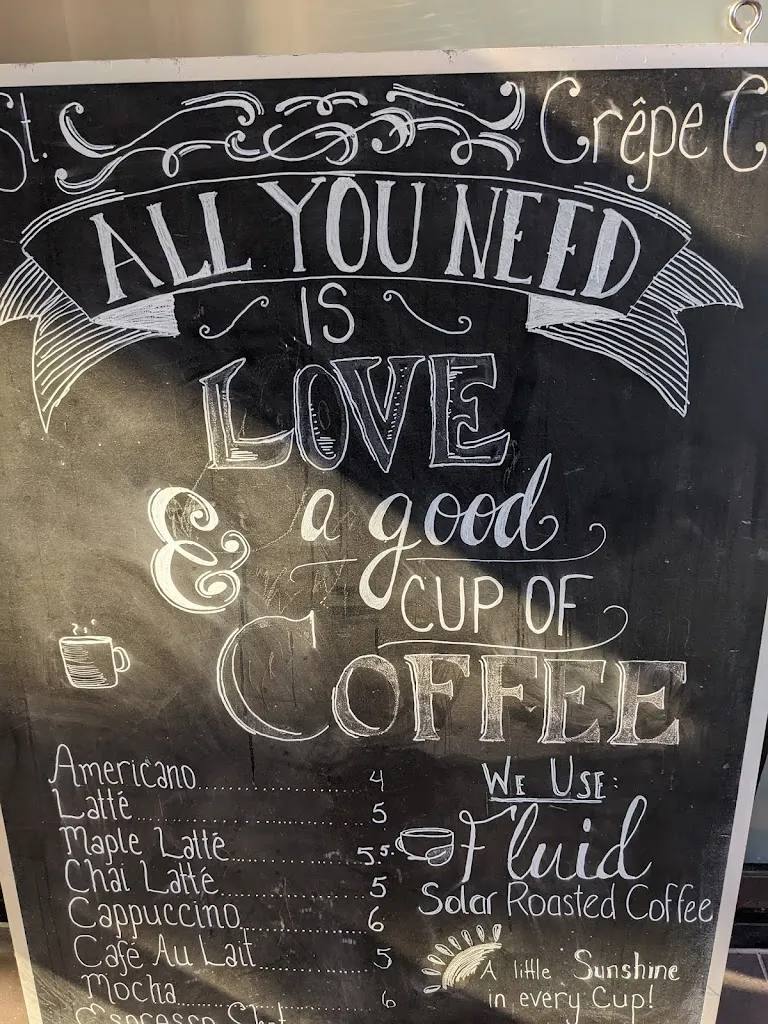 St. Crêpe C
ALL YOU NEED
IS
LOVE
& a good
CUP OF
COFFEE
Americano 4
Latté 5
Maple Latté 5.5
Chai Latté 5
Cappuccino 6
Café Au Lait 5
Mocha 6
Espresso Shot
WE USE:
Fluid
Solar Roasted Coffee
A little Sunshine
in every Cup!